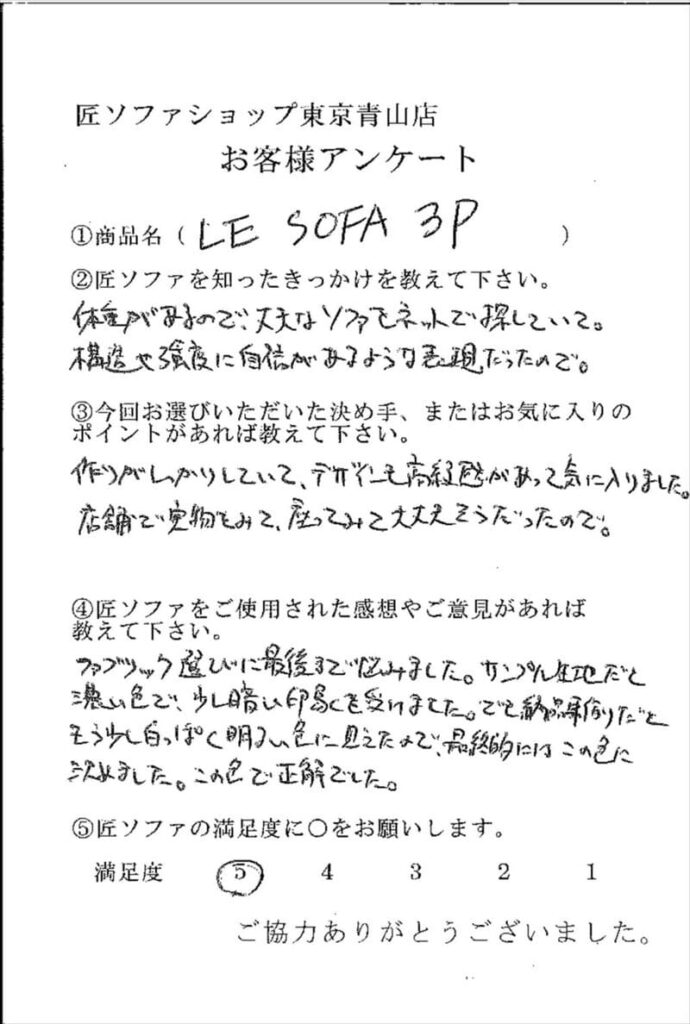 匠ソファショップ東京青山店
お客様アンケート
①商品名（ LE SOFA 3P ）
②匠ソファを知ったきっかけを教えて下さい。
体重があるので、丈夫なソファをネットで探していて。
構造や強度に自信があるような表現だったので。
③今回お選びいただいた決め手、またはお気に入りの
ポイントがあれば教えて下さい。
作りがしっかりしていて、デザインも高級感があって気に入りました。
店舗で実物をみて、座ってみて大丈夫そうだったので。
④匠ソファをご使用された感想やご意見があれば
教えて下さい。
ファブリック選びに最後まで悩みました。サンプル生地だと
濃い色で、少し暗い印象を受けました。でも りだと
もう少し白っぽく明るい色に見えたので、最終的にはこの色に
決めました。この色で正解でした。
⑤匠ソファの満足度に〇をお願いします。
満足度 5 4 3 2 1
ご協力ありがとうございました。